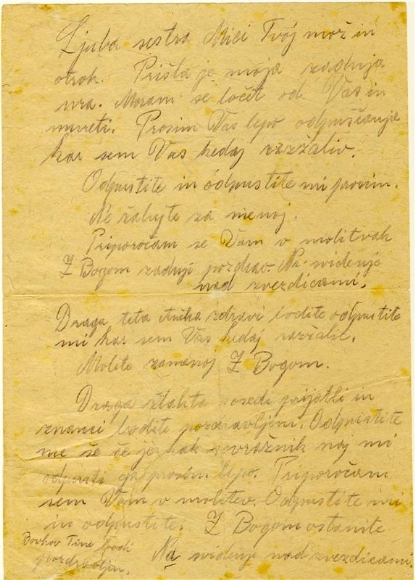 Ljuba sestra Mici Tvoj mož in
otrok. Prišla je moja zadnja
ura. Moram se ločit od Vas in
umreti. Prosim Vas lepo odpuščanja
kar sem Vas kedaj razžaliv.
Odpustite in odpustite mi prosim.
Ne žalujte za menoj.
Priporočam se Vam v molitvah
Z Bogom zadnji pozdrav. Na svidenje
nad zvezdicami.
Draga teta zdravi bodite odpustite
mi kar sem Vas kedaj razžalil.
Molite zamanoj Z Bogom.
Draga žlahta sosedi prijatli in
znanci bodite pozdravljeni. Odpustite
me še če je sovražnik naj mi
odpusti ga prosim lepo. Priporočam
sem Vam v molitev. Odpustite mi
in odpustite. Z Bogom ostanite
Na svidenje nad zvezdicami
Tine bodi
pozdravljen.